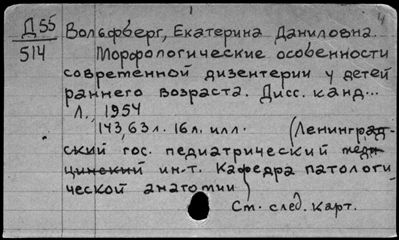 Д55 Вольфберг, Екатерина Даниловна.
514 Морфологические особенности
современной дизентерии у детей
раннего возраста. Дисс. канд...
Л., 1954
143, 63 л. 16 л. илл. (Ленинград-
ский гос. педиатрический меди-
цинский ин-т. Кафедра патологи
ческой анатомии)
См. след. карт.